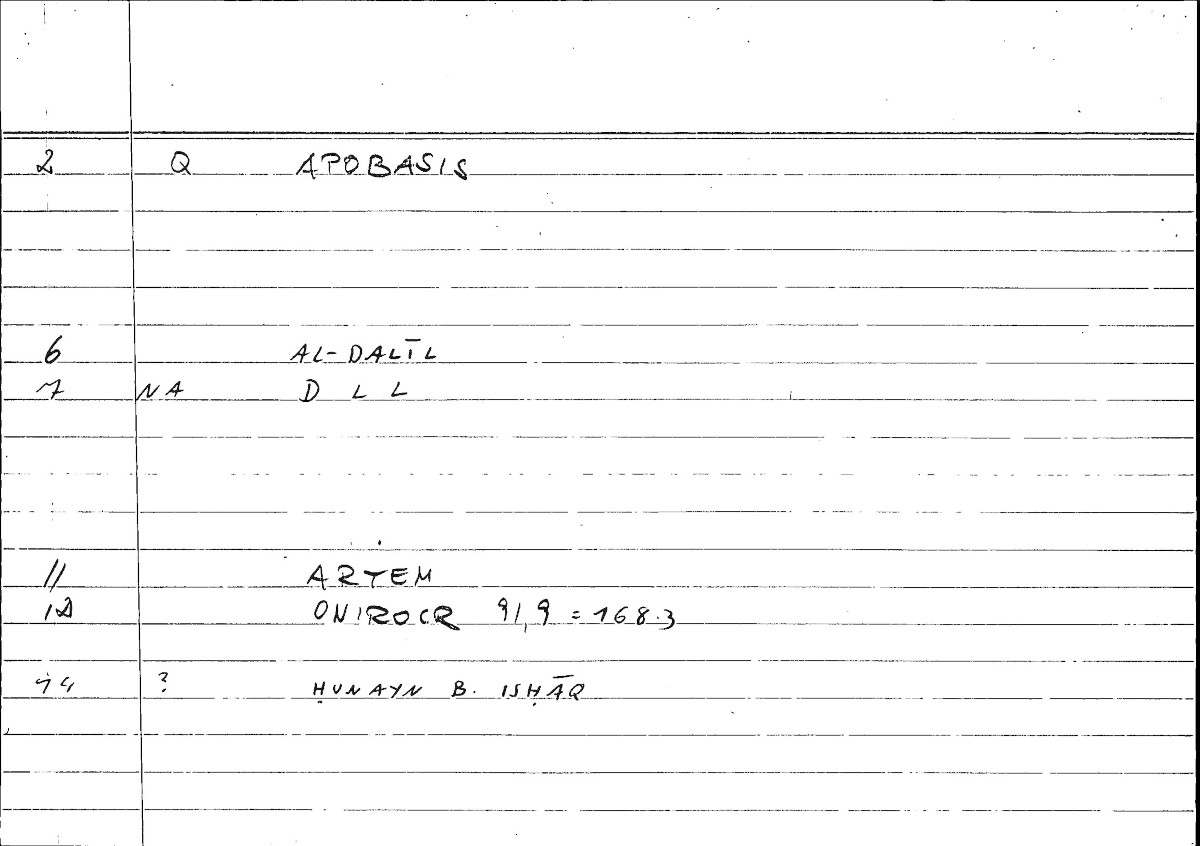 2 Q APOBASIS
6 AL-DALĪL
7 NA D L L
11 ARTEM
12 ONIROCR 91,9 = 168.3
14 ? ḤUNAYN B. ISḤĀQ